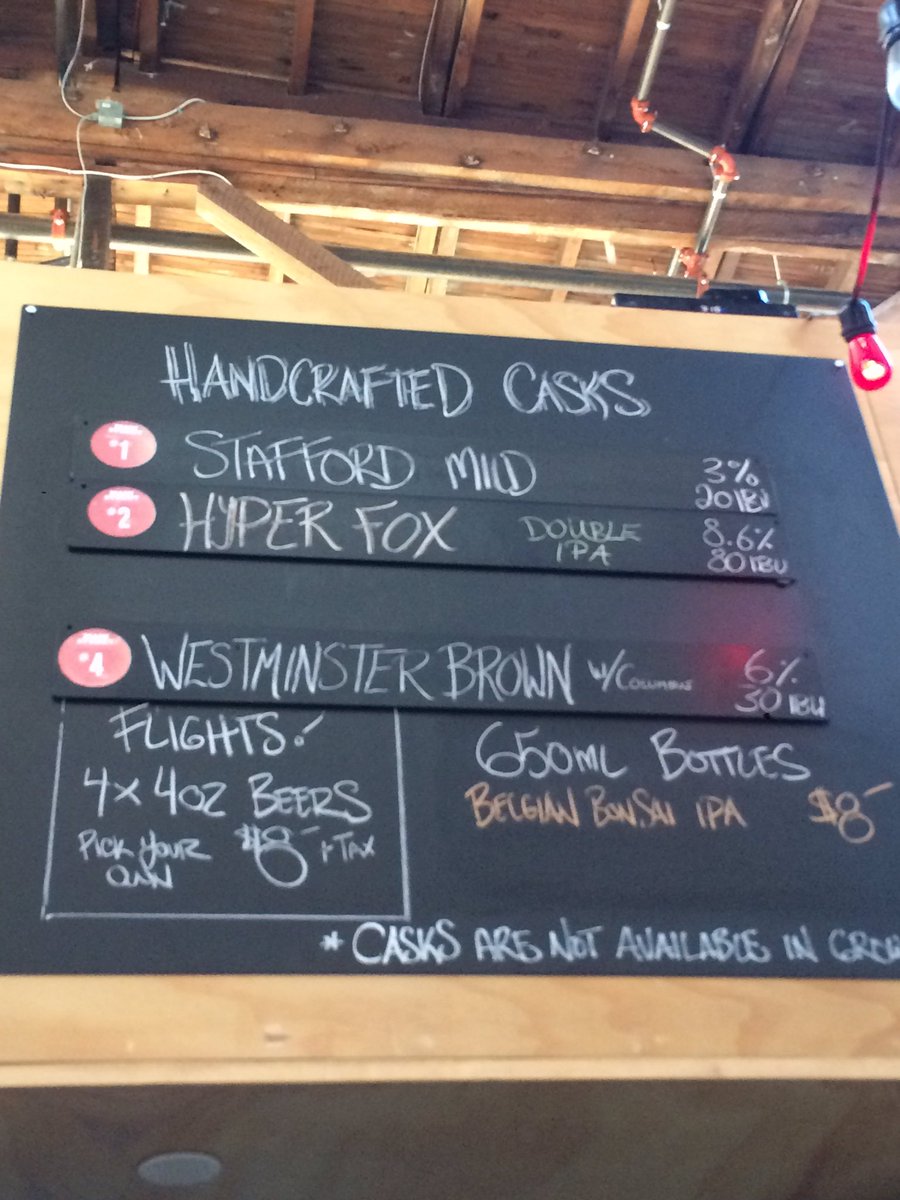 HANDCRAFTED CASKS
#1 STAFFORD MILD 3%
20 IBU
#2 HYPER FOX DOUBLE IPA 8.6%
80 IBU
#4 WESTMINSTER BROWN W/COLUMBUS 6%
30 IBU
FLIGHTS!
4X4OZ BEERS
PICK YOUR OWN $8- + TAX
650ML BOTTLES
BELGIAN BONSAI IPA $8-
* CASKS ARE NOT AVAILABLE IN GROW